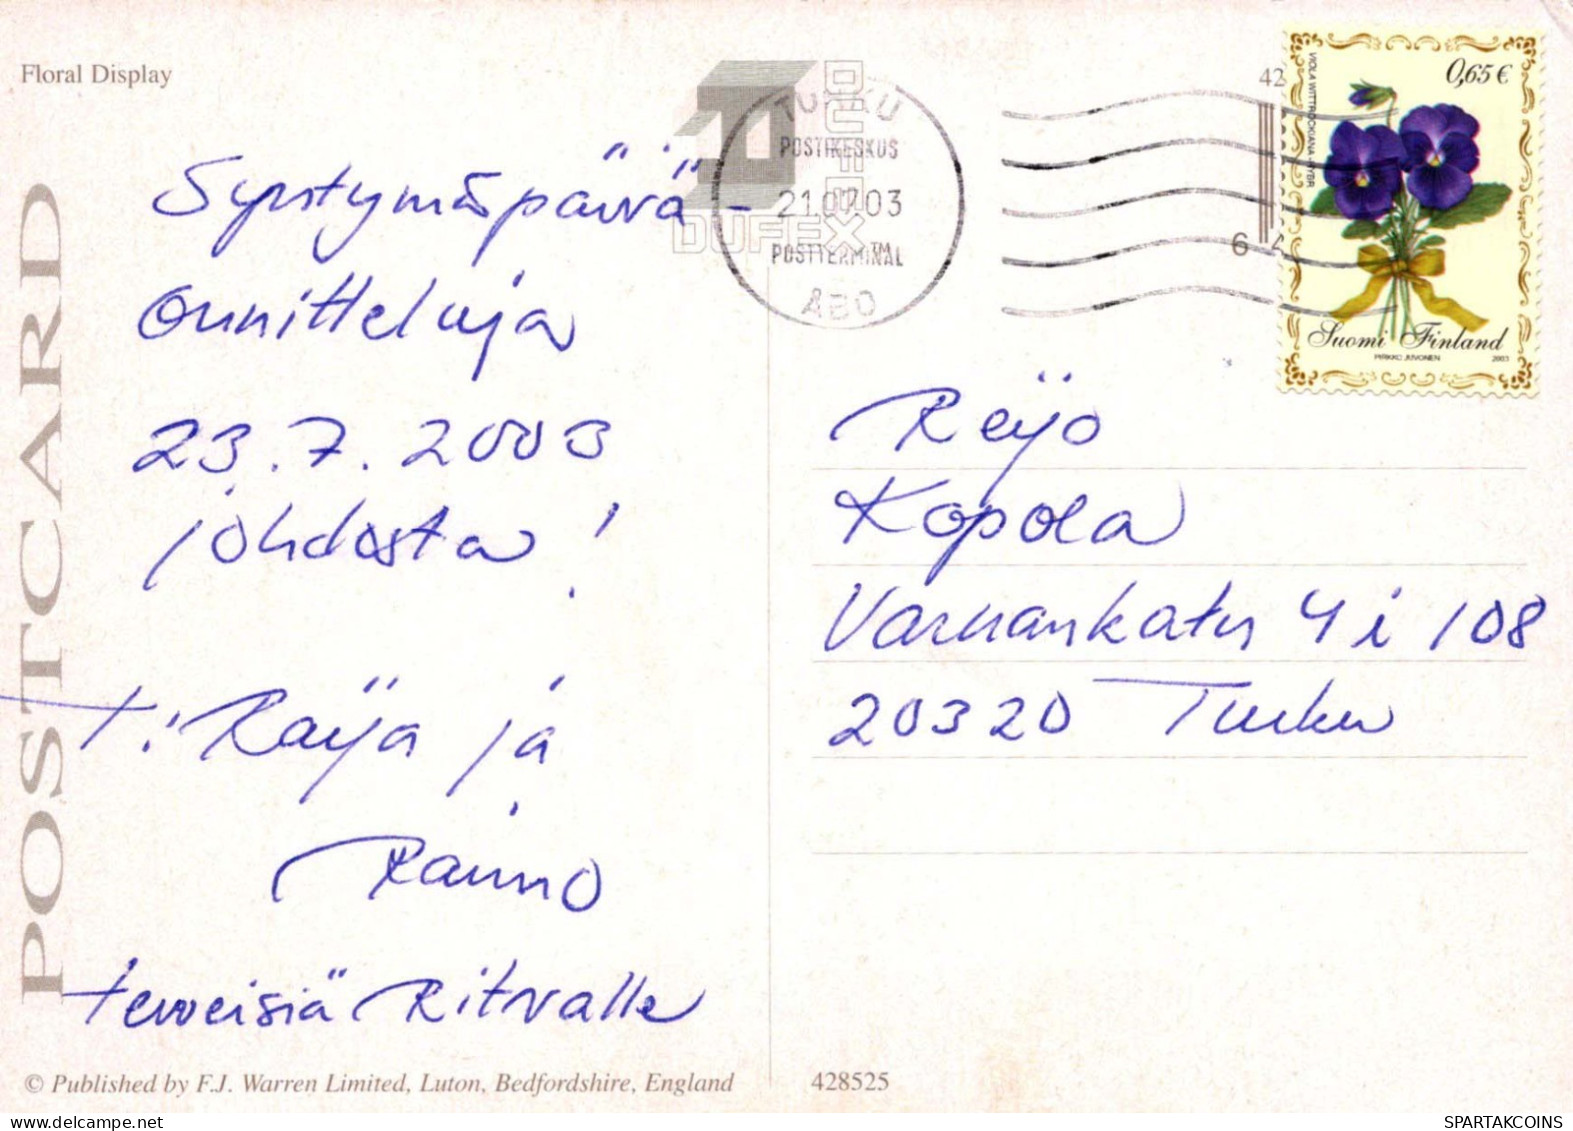 Floral Display
POSTCARD
Syntymäpäivä-
onnitteluja
23.7.2003
johdosta!
T: Raija ja
Raimo
terveisiä Ritvalle
© Published by F.J. Warren Limited, Luton, Bedfordshire, England
DUFEX
DUFEX™
TURKU
POSTIKESKUS
21.07.03
POSTTERMINAL
ÅBO
42
6 4
0,65 €
VIOLA WITTROCKIANA-HYBR.
Suomi Finland
PIRKKO JUVONEN 2003
Reijo
Kopola
Varusankatu 4 i 108
20320 Turku
428525
SPARTAKCOINS